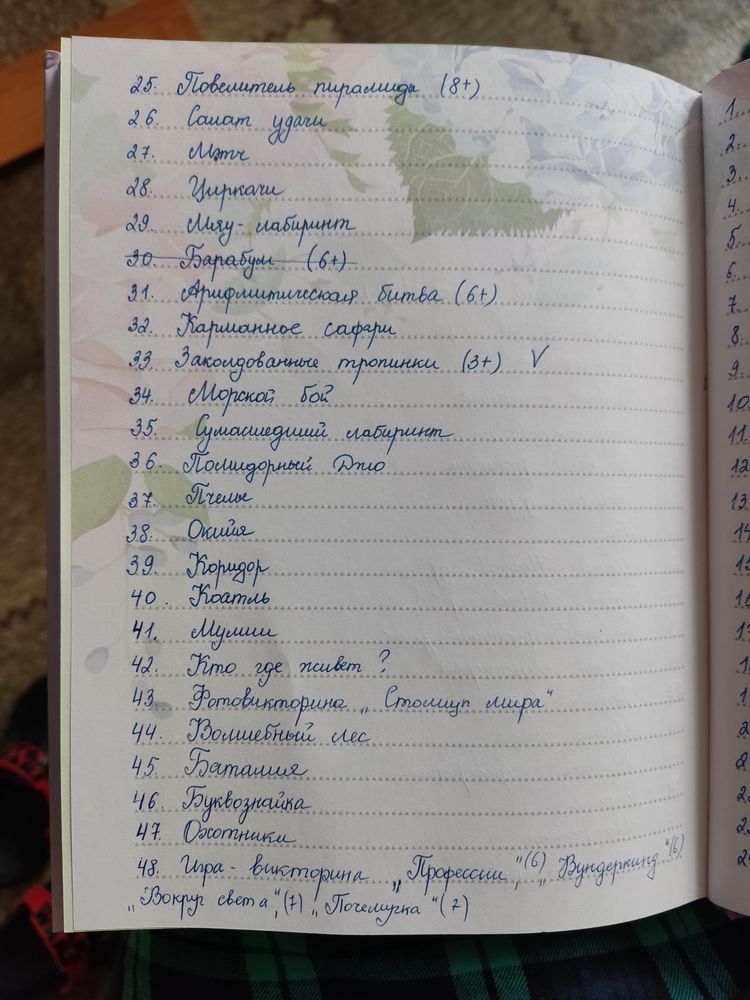 25. Повелитель пирамиды (8+)
26. Салат удачи
27. Мэтч
28. Циркачи
29. Мяу-лабиринт
30. Барабум (6+)
31. Арифмитическая битва (6+)
32. Карманное сафари
33. Заколдованные тропинки (3+) V
34. Морской бой
35. Сумасшедший лабиринт
36. Помидорный Джо
37. Пчелы
38. Окийя
39. Коридор
40. Коатль
41. Мумии
42. Кто где живет?
43. Фотовикторина „Столицы мира"
44. Волшебный лес
45. Баталия
46. Буквознайка
47. Охотники
48. Игра-викторина „Профессии"(6), „Вундеркинд"(6)
„Вокруг света",(7) „Почемучка"(7)
1.
2.
3.
4.
5.
6.
7.
8.
9.
10.
11.
12
13.
14
15
16
17